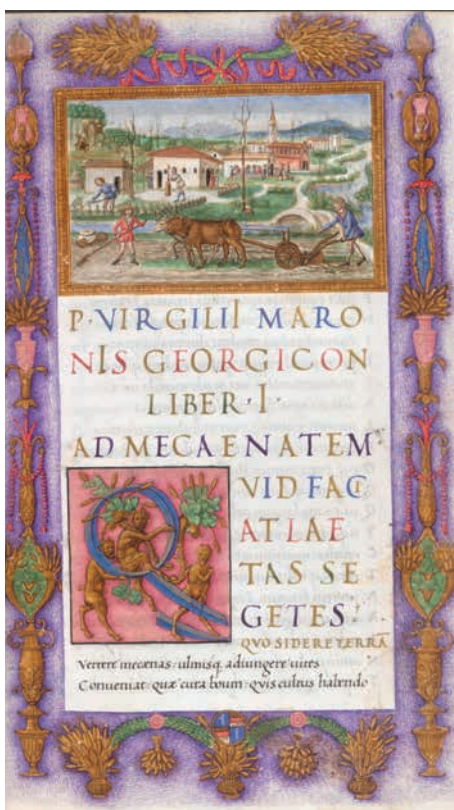 P·VIRGILII MARO
NIS GEORGICON
LIBER·I·
AD MECAENATEM
QVID FACI
AT LAE
TAS SE
GETES:
QVO SIDERE TERRĀ
Vertere mecœnas: ulmisq. adiungere uites
Conueniat: quæ cura boum: qvis cultus habendo